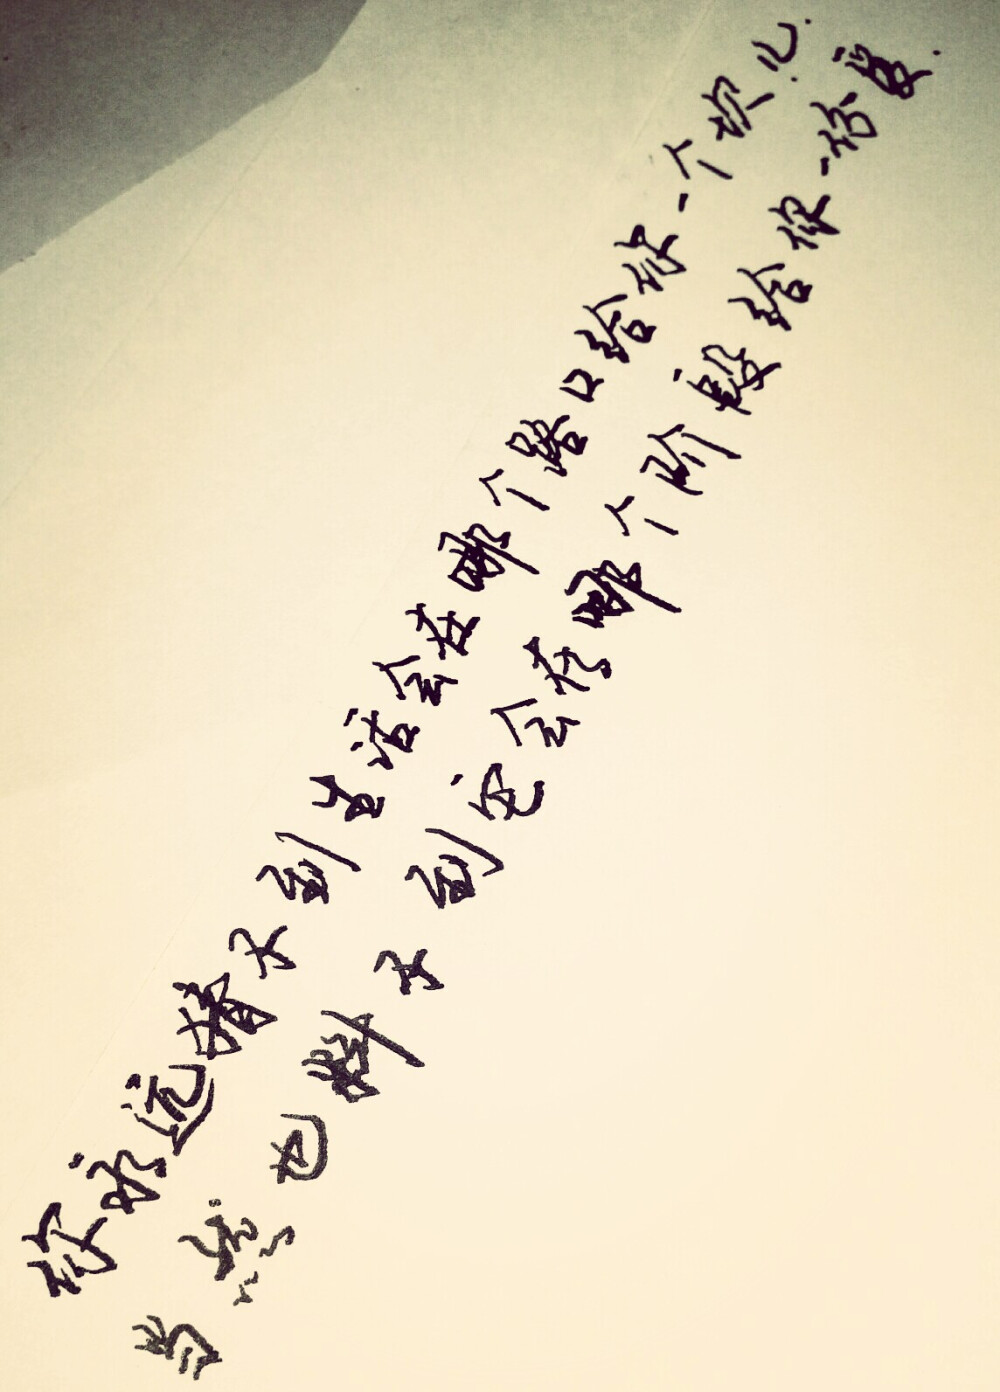 你永远猜不到生活会在哪个路口给你一个坝儿.
当然也料不到它会在哪个阶段给你一份爱.